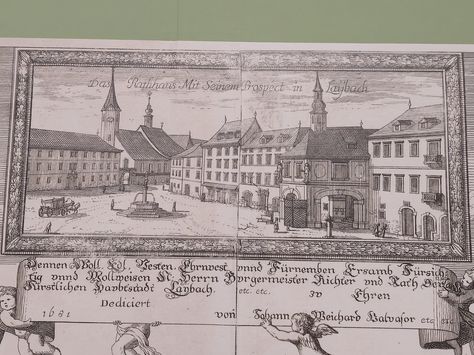 Das Rathhaus Mit Seinem Prospect in Laybach
Dennen Woll. Edl. Vesten. Ehrnvest vnnd Fürnemben Ersamb Fürsich-
tig vnnd Wollweisen N: Herrn Burgermeister Richter und Rath der
Fürstlichen Haubtstadt Laybach. etc. etc. zu Ehren
Dediciert
1681 von Johann Weichard Valvasor etc etc